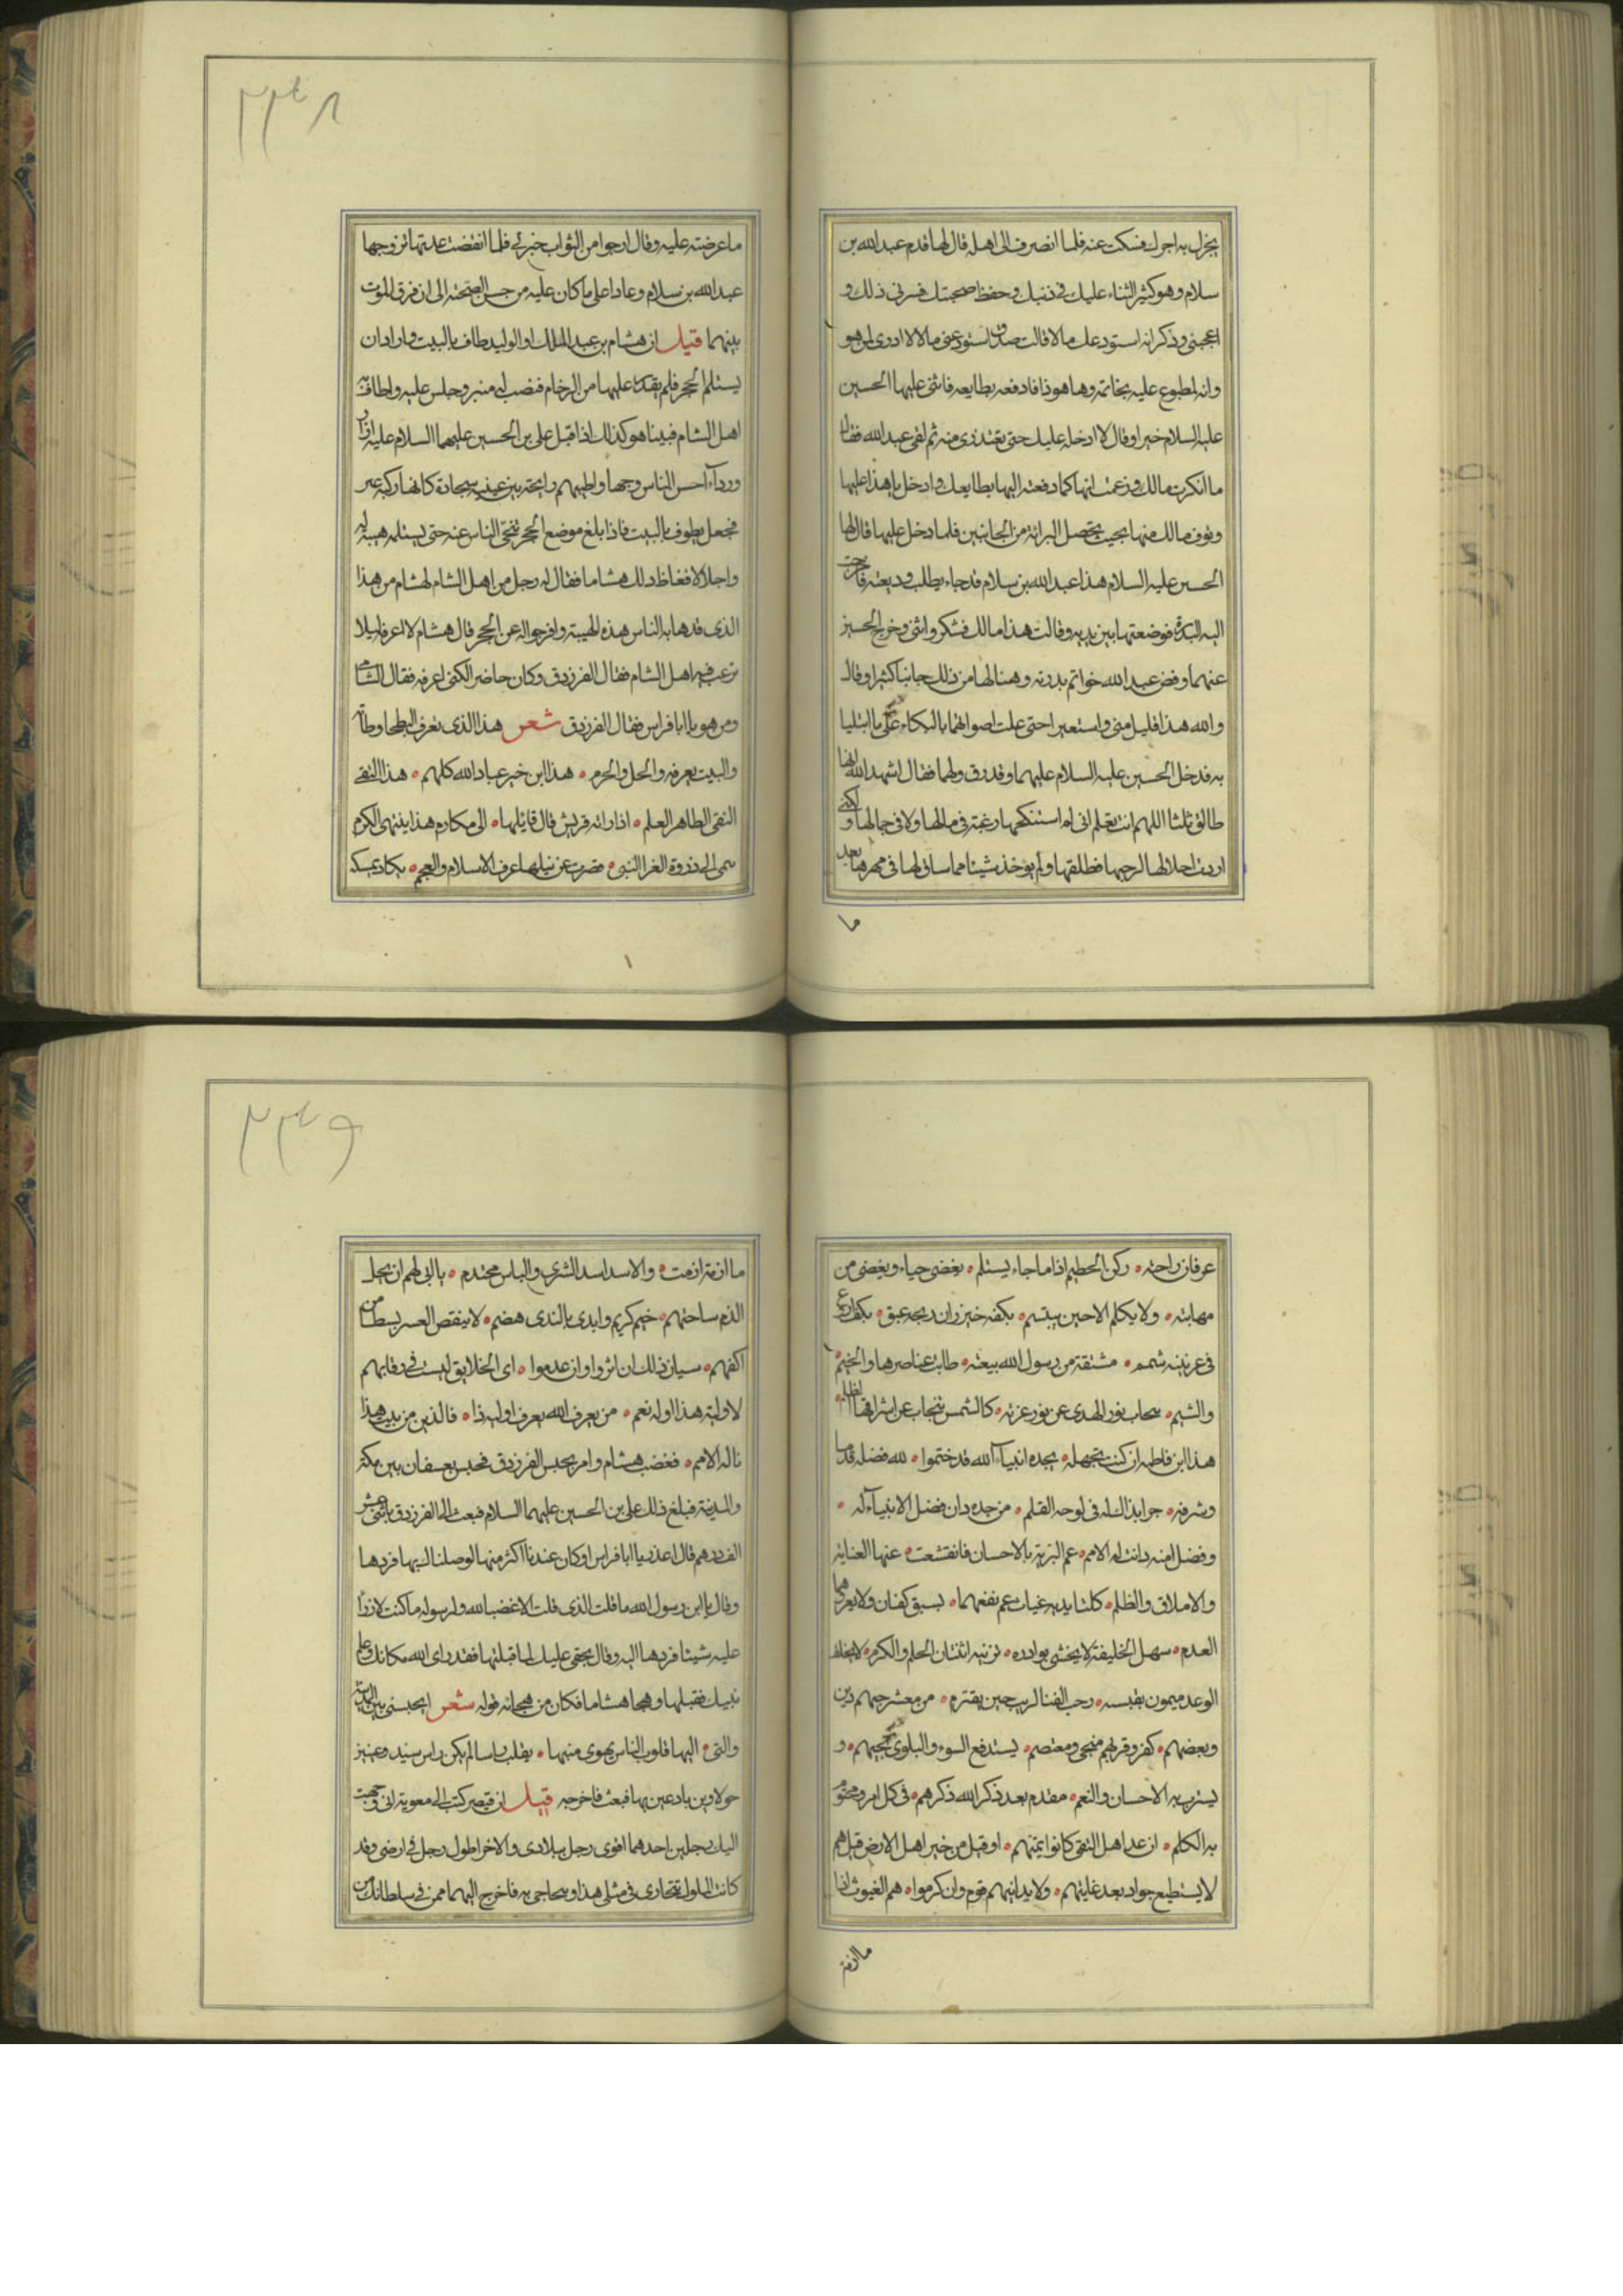 يجزل به اجرك فسكت عنه فلما انصرف الى اهله قال لها قدم عبدالله بن
سلام وهو كثير الثناء عليك في دينك وحفظ صحبتك فسرني ذلك و
اعجبني وذكر انه استودعك مالا قالت صدق استودعني مالا لا ادرى لمن هو
وانه لمطبوع عليه بخاتمه وها هو ذا فادفعه بطابعه فاثنى عليها الحسين
عليه السلام خيرا وقال لا ادخله عليك حتى تعتذرى منه ثم لقى عبدالله فقال
ما انكرت مالك وزعمت انها كما دفعته اليها بطابعك وادخل يا هذا عليها
وتوف مالك منها بحيث يحصل البرائة من الجانبين فلما دخل عليها قال لها
الحسين عليه السلام هذا عبدالله بن سلام قد جاء يطلب وديعته فاخرجت
اليه البدرة فوضعتها بين يديه وقالت هذا مالك فشكر واثنى وخرج الحسين
عنهما وفض عبدالله خواتم بدرته وهنا لها من ذلك جانبا كثيرا وقال
والله هذا قليل منى واستعبرا حتى علت اصواتهما بالبكاء على ما ابتليا
به فدخل الحسين عليه السلام عليهما وقد رق لهما فقال اشهد الله انها
طالق ثلثا اللهم انت تعلم انى لم استنكحها رغبة في مالها ولا في جمالها ولكنى
اردت احلالها لزوجها فطلقها ولم يوخذ شيئا مما ساق لها في مهرها بعد
ما
٢٢٤٨
ما عرضته عليه وقال ارجوا من الثواب خير لي فلما انقضت عدتها تزوجها
عبدالله بن سلام وعادا على ما كان عليه من حسن الصحبة الى ان فرق الموت
بينهما قيل ان هشام بن عبد الملك او الوليد طاف بالبيت واراد ان
يستلم الحجر فلم يقدر عليها من الزحام فنصب له منبر وجلس عليه واطاف به
اهل الشام فبينا هو كذلك اذ اقبل على بن الحسين عليهما السلام عليه ازار
ورداء احسن الناس وجها واطيبهم رايحة بين عينيه سجادة كانها ركبة عنز
فجعل يطوف بالبيت فاذا بلغ موضع الحجر تنحى الناس عنه حتى يستلمه هيبة له
واجلالا فغاظ ذلك هشاما فقال له رجل من اهل الشام لهشام من هذا
الذى قد هابه الناس هذه الهيبة وافرجوا له عن الحجر قال هشام لا اعرفه ليلا
ترغب فيه اهل الشام فقال الفرزدق وكان حاضرا لكنى اعرفه فقال الشامى
ومن هو يا ابا فراس فقال الفرزدق شعر هذا الذى تعرف البطحا وطأته
والبيت يعرفه والحل والحرم هذا ابن خير عباد الله كلهم هذا التقي
النقي الطاهر العلم اذا راته قريش قال قايلها الى مكارم هذا ينتهى الكرم
ينمى الى ذروة العز التي قصرت عن نيلها عرب الاسلام والعجم يكاد يمسكه
١
عرفان راحته ركن الحطيم اذا ما جاء يستلم يغضى حياء ويغضى من
مهابته ولا يكلم الا حين يبتسم بكفه خيزران ريحه عبق بكف اروع
في عرنينه شمم مشتقة من رسول الله بيعته طابت عناصرها والخيم
والشيم ينجاب نور الهدى عن نور غرته كالشمس ينجاب عن اشراقها الظلم
هذا ابن فاطمه ان كنت تجهله بجده انبياء الله قد ختموا لله فضله قدما
وشرفه جرا بذاك له في لوحه القلم من جده دان فضل الانبياء له
وفضل امته دانت له الامم عم البرية بالاحسان فانقشعت عنها العناية
والاملاق والظلم كلتا يديه غياث عم نفعهما يسبق كفان ولا يعروهما
العدم سهل الخليقة لا يخشى بوادره تزينه اثنتان الحلم والكرم لا يخلف
الوعد ميمون بقيسه رحب الفنا اريب حين يقترم من معشر حبهم دين
وبغضهم كفر وقربهم منجى ومعتصم يستدفع السوء والبلوى بحبهم و
يسترب به الاحسان والنعم مقدم بعد ذكر الله ذكرهم في كل امر ومختوم
به الكلم ان عد اهل التقى كانوا ايمتهم او قيل من خير اهل الارض قيل هم
لا يستطيع جواد بعد غايتهم ولا يدانيهم قوم وان كرموا هم الغيوث اذا
ما ازمة
٢٢٤٩
ما ازمة ازمت والاسد اسد الشرى والباس محتدم يابى لهم ان يحل
الذم ساحتهم خيم كريم وايدى بالندى هضم لا ينقص العسر بسطا من
اكفهم سيان ذلك ان اثروا وان عدموا اى الخلايق ليست في رقابهم
لاولية هذا اوله نعم من يعرف الله يعرف اولية ذا فالدين من بيت هذا
ناله الامم فغضب هشام وامر بحبس الفرزدق فحبس بعسفان بين مكة
والمدينة فبلغ ذلك على بن الحسين عليهما السلام فبعث الى الفرزدق باثنى عشر
الف درهم قال اعذر يا ابا فراس لو كان عندنا اكثر منها لوصلناك بها فردها
وقال يا ابن رسول الله ما قلت الذى قلت الا غضبا لله ولرسوله ما كنت لازرأ
عليه شيئا فردها اليه وقال بحقى عليك لما قبلتها فقد راى الله مكانك وعلم
نيتك فقبلها وهجا هشاما فكان من هجائه قوله شعر ايحبسنى بين المدينة
والتي اليها قلوب الناس يهوى منيبها يقلب راسا لم يكن راس سيد وعينين
حولاوين باد عين بها فبعث فاخرجه قيل ان قيصر كتب الى معوية انى وجهت
اليك رجلين احدهما اقوى رجل ببلادى والاخر اطول رجل في ارضى وقد
كانت الملوك تتجارى في مثل هذا وتحاجى به فاخرج اليهما ممن في سلطانك من